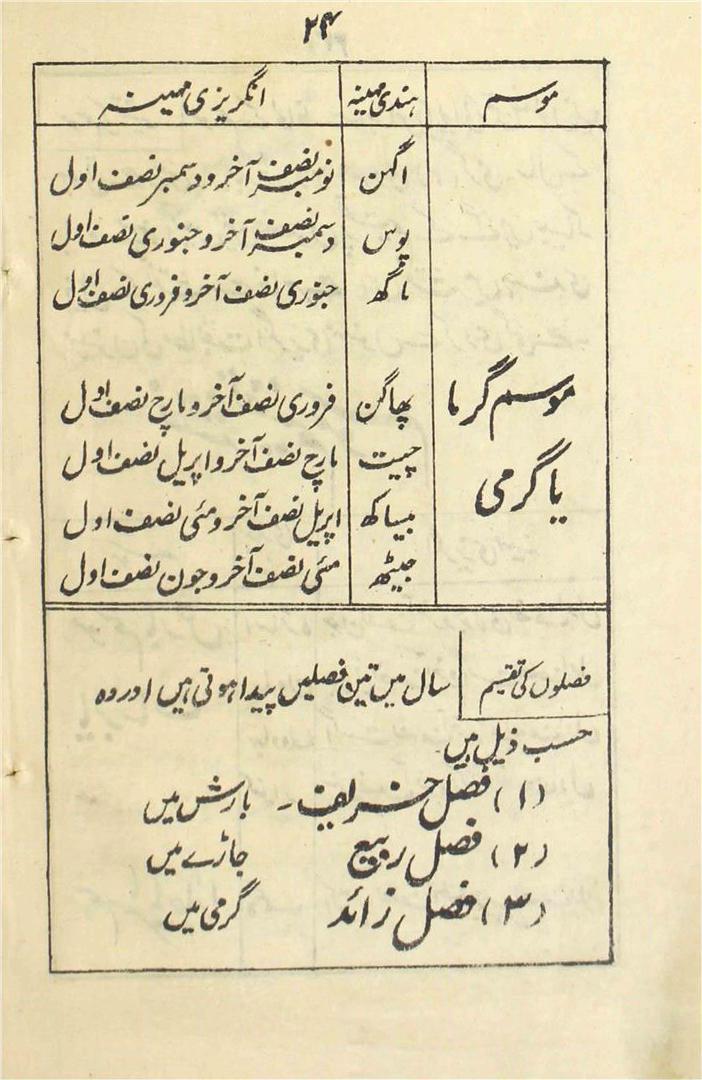 ۲۴
موسم ہندی مہینہ انگریزی مہینہ
اگہن نومبر نصف آخر و دسمبر نصف اول
پوس دسمبر نصف آخر و جنوری نصف اول
ماگھ جنوری نصف آخر و فروری نصف اول
موسم گرما پھاگن فروری نصف آخر و مارچ نصف اول
چیت مارچ نصف آخر و اپریل نصف اول
یا گرمی بیساکھ اپریل نصف آخر و مئی نصف اول
جیٹھ مئی نصف آخر و جون نصف اول
فصلوں کی تقسیم سال میں تین فصلیں پیدا ہوتی ہیں اور وہ
حسب ذیل ہیں۔
(۱) فصل خریف ۔ بارش میں
(۲) فصل ربیع جاڑے میں
(۳) فصل زائد گرمی میں